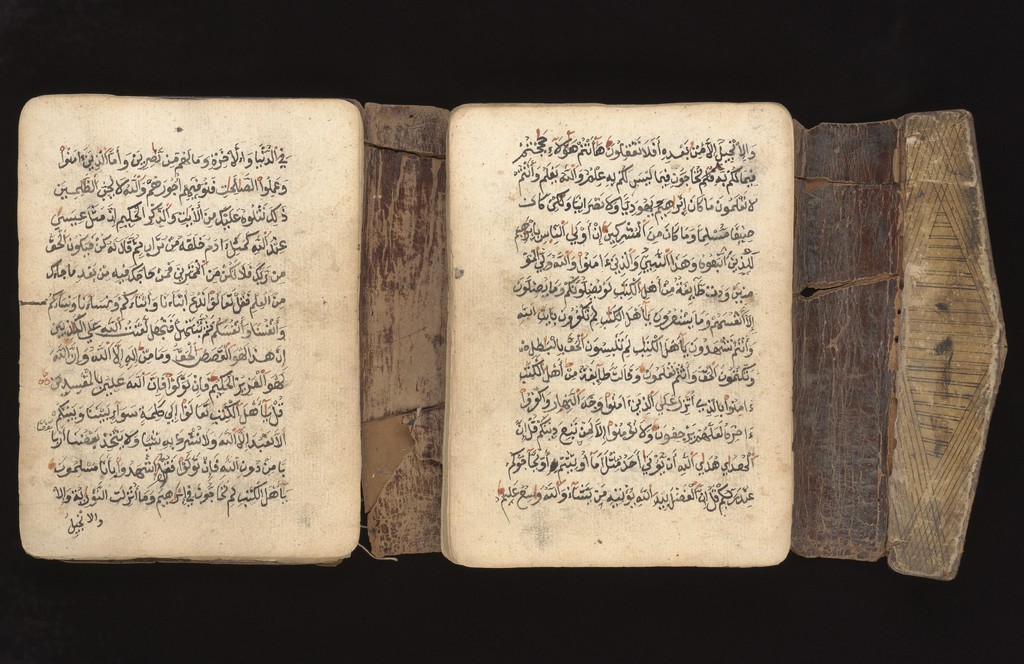 في الدنيا والاخرة وما لهم من نصرين واما الذين ءامنوا
وعملوا الصلحت فنوفيهم اجورهم والله لا يحب الظلمين
ذلك نتلوه عليك من الايت والذكر الحكيم ان مثل عيسى
عند الله كمثل ءادم خلقه من تراب ثم قال له كن فيكون الحق
من ربك فلا تكن من الممترين فمن حاجك فيه من بعد ما جاءك
من العلم فقل تعالوا ندع ابناءنا وابناءكم ونساءنا ونساءكم
وانفسنا وانفسكم ثم نبتهل فنجعل لعنت الله على الكذبين
ان هذا لهو القصص الحق وما من اله الا الله وان الله
لهو العزيز الحكيم فان تولوا فان الله عليم بالمفسدين
قل ياهل الكتب تعالوا الى كلمة سواء بيننا وبينكم
الا نعبد الا الله ولا نشرك به شيا ولا يتخذ بعضنا اربا
با من دون الله فان تولوا فقولوا اشهدوا بانا مسلمون
ياهل الكتب لم تحاجون في ابرهيم وما انزلت التورية والا
والانجيل
والانجيل الا من بعده افلا تعقلون هانتم هؤلاء حججتم
فيما لكم به علم فلم تحاجون فيما ليس لكم به علم والله يعلم وانتم
لا تعلمون ما كان ابرهيم يهوديا ولا نصرانيا ولكن كان
حنيفا مسلما وما كان من المشركين ان اولى الناس بابرهيم
للذين اتبعوه وهذا النبي والذين ءامنوا والله ولي المو
منين ودت طايفة من اهل الكتب لو يضلونكم وما يضلون
الا انفسهم وما يشعرون ياهل الكتب لم تكفرون بايت الله
وانتم تشهدون ياهل الكتب لم تلبسون الحق بالبطل
وتكتمون الحق وانتم تعلمون وقالت طايفة من اهل الكتب
ءامنوا بالذي انزل على الذين ءامنوا وجه النهار واكفروا
ءاخره لعلهم يرجعون ولا تومنوا الا لمن تبع دينكم قل ان
الهدى هدى الله ان يوتى احد مثل ما اوتيتم او يحاجوكم
عند ربكم قل ان الفضل بيد الله يوتيه من يشاء والله واسع عليم